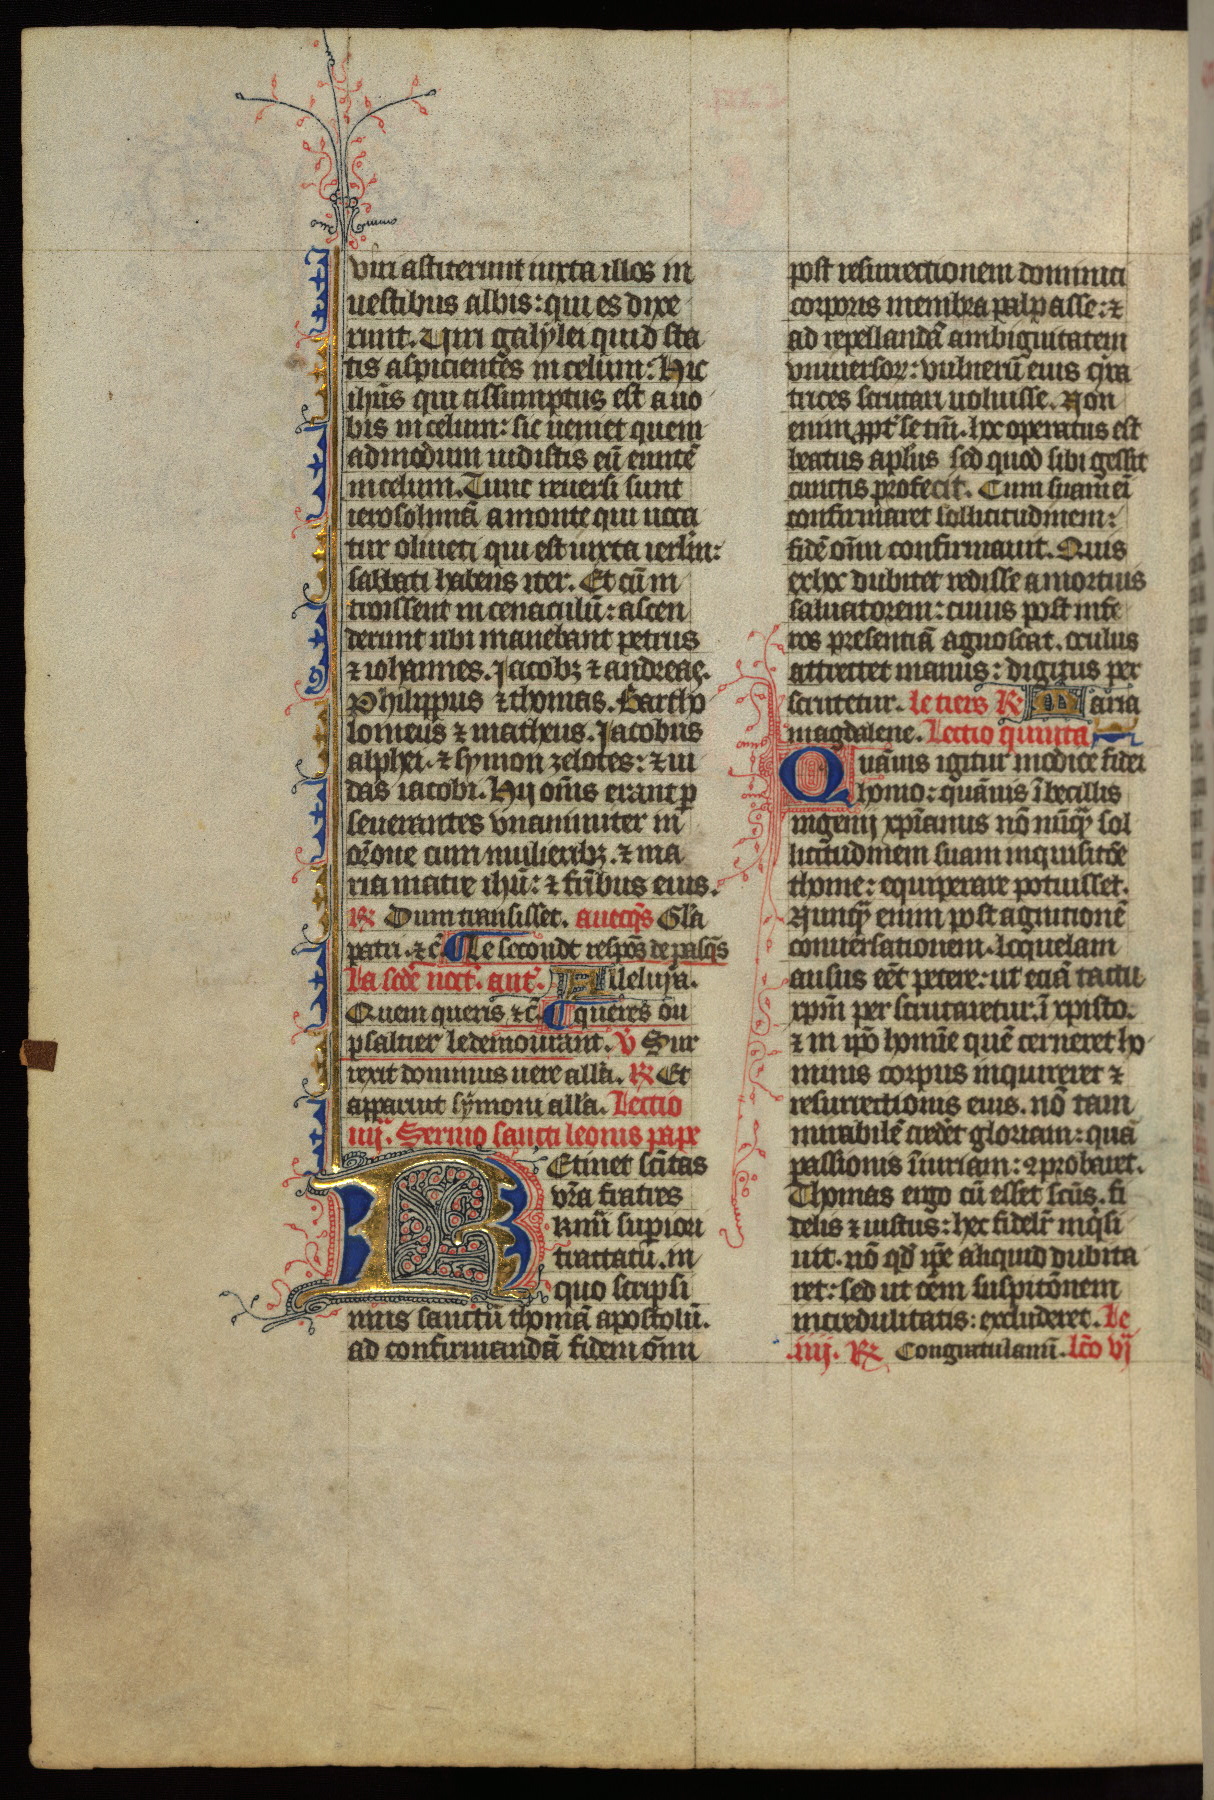 viri astiterunt iuxta illos in
uestibus albis: qui es dixe
runt. Viri galylei quid sta
tis aspicientes in celum: Hic
ihūs qui assumptus est a uo
bis in celum: sic ueniet quem
admodum uidistis eū euntē
in celum. Tunc reuersi sunt
ierosolimā a monte qui uoca
tur oliueti qui est iuxta ierlm̄:
sabbati habens iter. Et cū in
troissent in cenaculū: ascen
derunt ubi manebant petrus
⁊ iohannes. Jacobꝫ ⁊ andreas.
Philippus ⁊ thomas. Bartho
lomeus ⁊ matheus. Jacobus
alphei. ⁊ symon zelotes: ⁊ iu
das iacobi. Hij om̄s erant ꝑ
seuerantes vnanimiter in
orōne cum mulieribꝫ. ⁊ ma
ria matre ihū: ⁊ fr̄ibus eius.
℟ Dum transisset. auecq̄s Gl̄a
patri. ⁊c̄ ¶ Le secondt respōꝫ de pasq̄s
La scdē noct̄. ant̄. Alleluya.
Quem queris ⁊c̄ ¶ queres ou
psaltier le demourant. ℣ Sur
rexit dominus uere allā. ℟ Et
apparuit symoni allā. Lectio
iiij. Sermo sancti leonis pape
REtinet sc̄itas
vr̄a fratres
kmī supiori
tractatu. in
quo scripsi
mus sanctū thomā apostolū.
ad confirmandā fidem om̄i
post resurrectionem dominici
corporis membra palpasse: ⁊
ad repellandā ambiguitatem
vniuersoꝝ: vulnerū eius cica
trices scrutari uoluisse. Non
enim ꝓpt̄ se tm̄. hoc operatus est
beatus apl̄us sed quod sibi gessit
cunctis profecit. Cum suam ei
confirmaret sollicitudinem:
fidē om̄i confirmauit. Quis
ex hoc dubitet redisse a mortuis
saluatorem: cuius post infe
ros presentiā agnoscat. oculus
attrectet manus: digitus per
scrutetur. le tiers ℟ Maria
magdalene. Lectio quinta
Quāuis igitur modice fidei
homo: quāuis ībecillis
ingenij xp̄ianus nō nūqꝫ sol
licitudinem suam inquisitōe
thome: equiperare potuisset.
Nunqꝫ enim post agnitionē
conuersationem. loquelam
ausus eēt petere: ut etiā tactu
xpm̄ per scrutaretur. ī xpisto.
⁊ in ip̄o homīe quē cerneret ho
minis corpus inquireret ⁊
resurrectionis eius. nō tam
mirabilē crederet gloriam: quā
passionis īiuriam: ꝯprobaret.
Thomas ergo cū esset scūs. fi
delis ⁊ iustus: hec fidelr̄ inq̄si
uit. nō qd̄ ip̄e aliquid dubita
ret: sed ut om̄em suspitōnem
incredulitatis: excluderet. Le
.iiij. ℟ Congratulamī. lc̄o vj